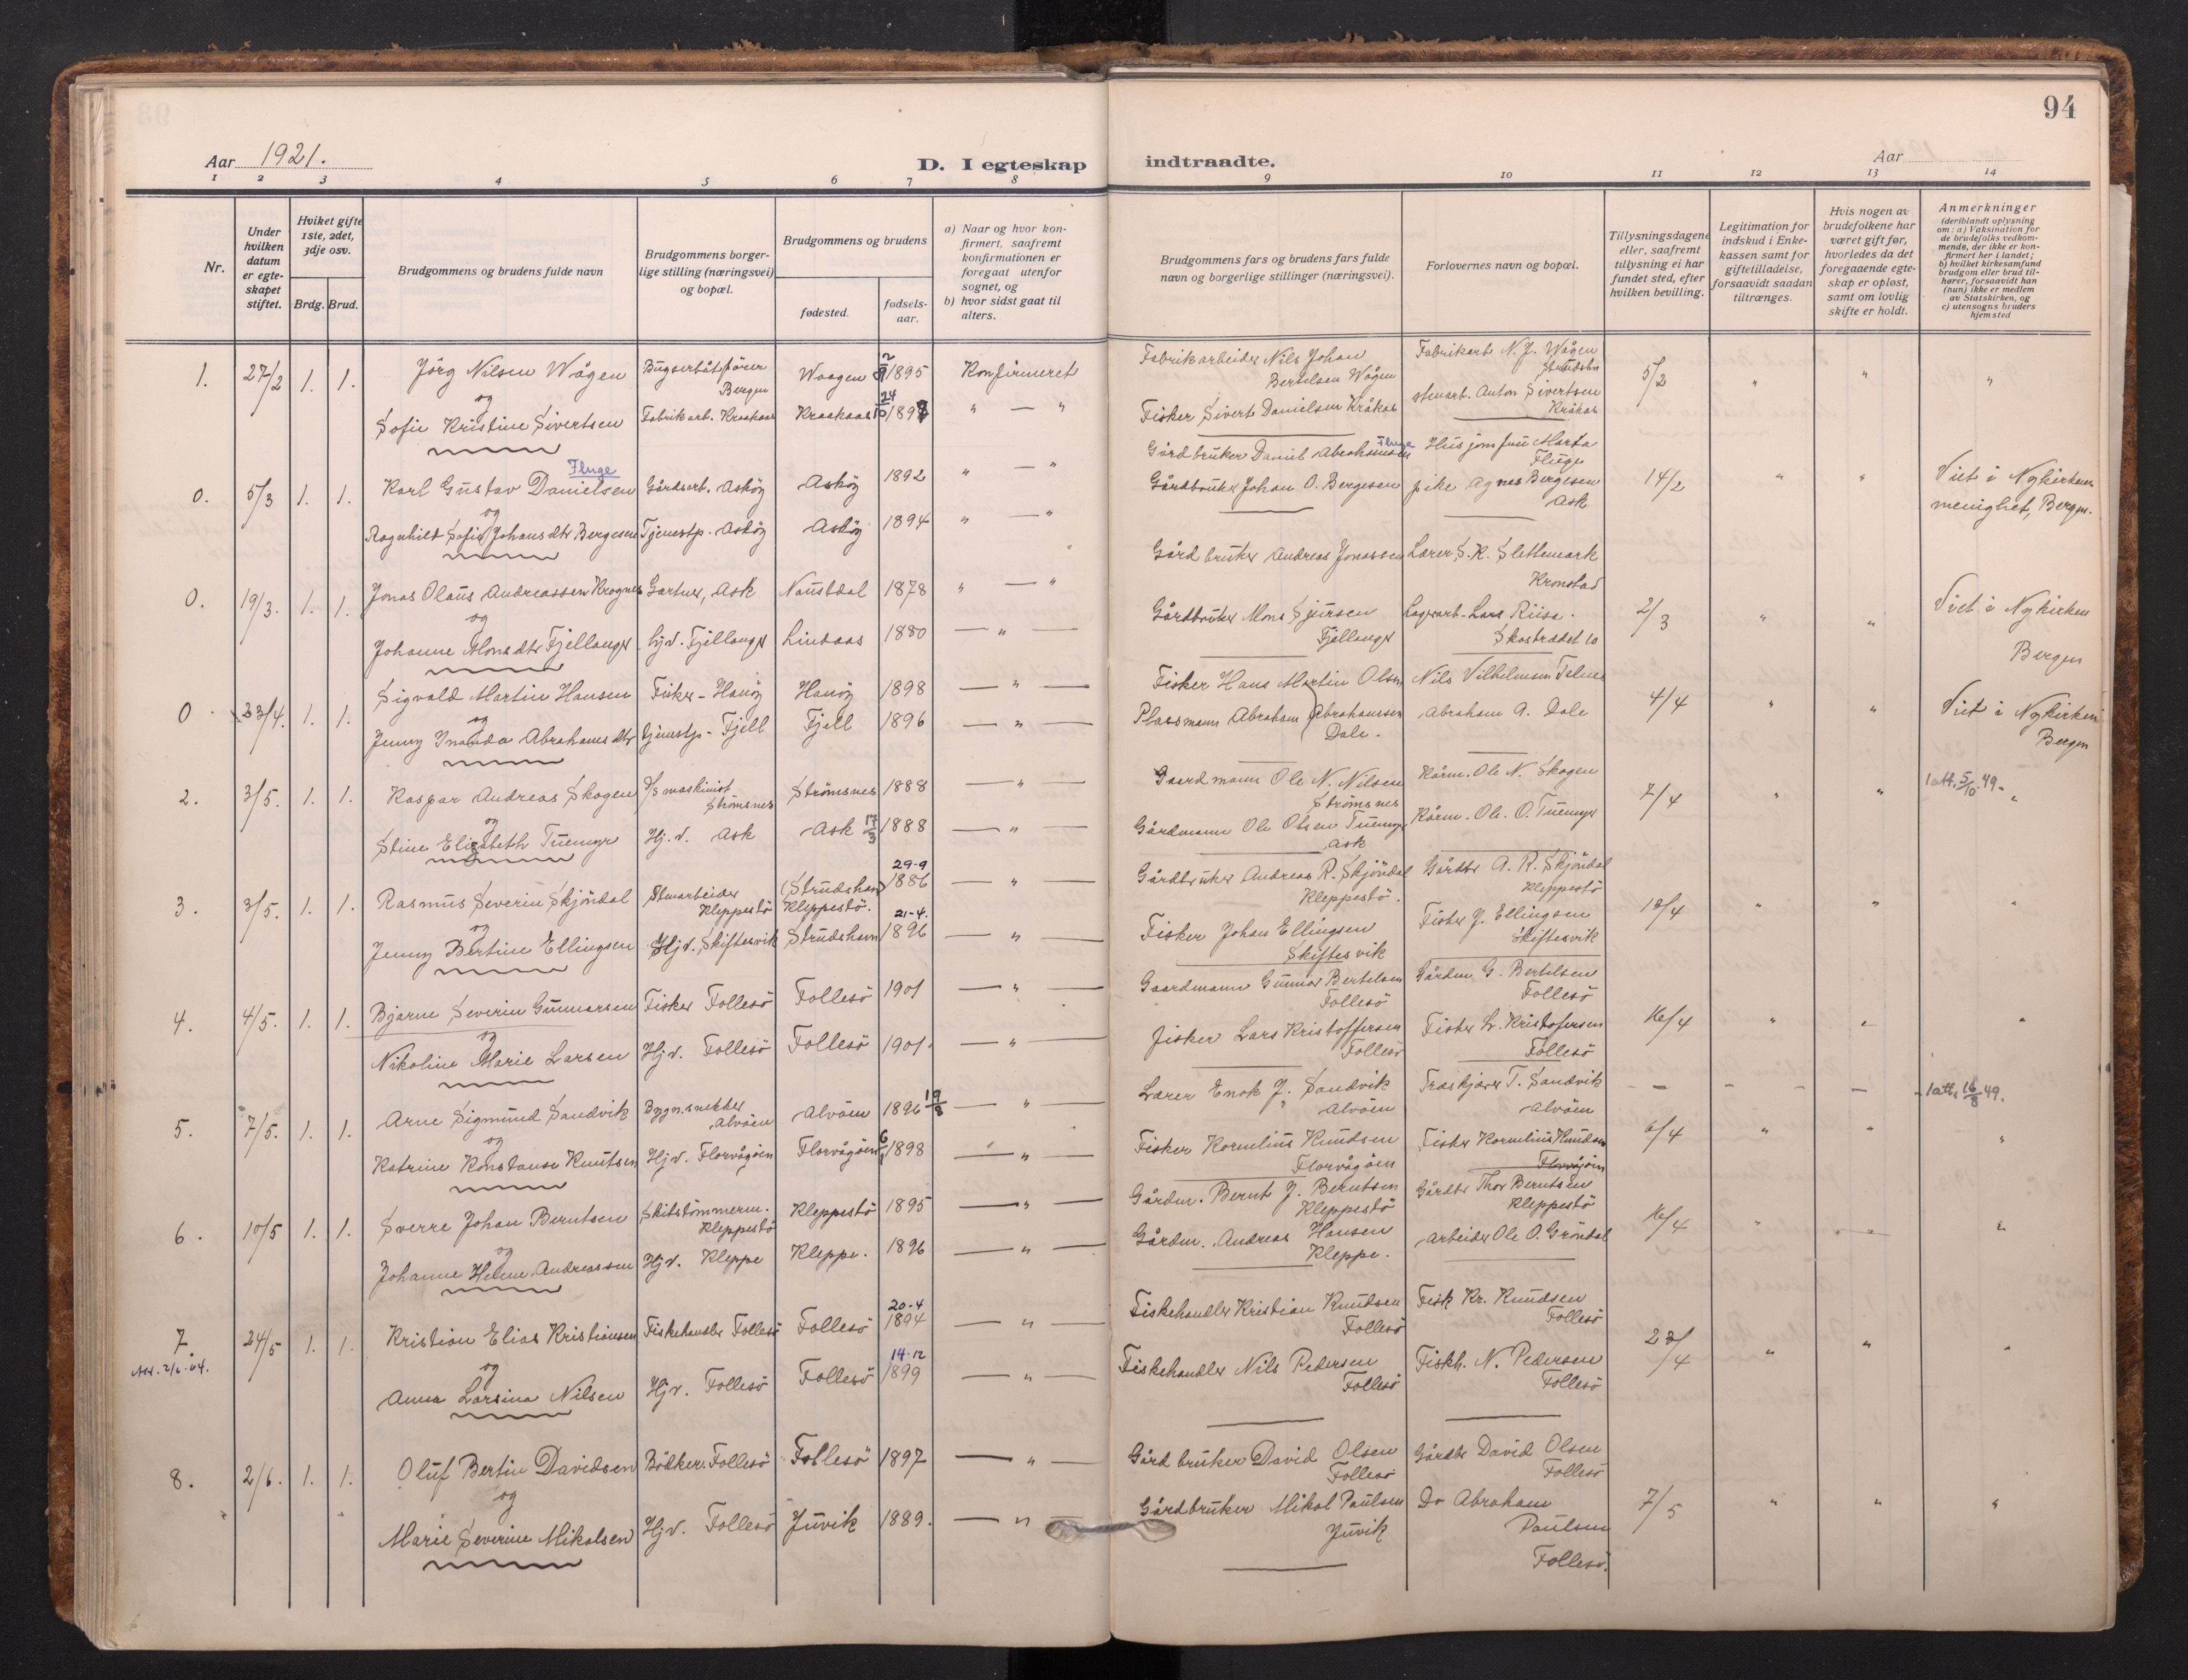 94
Aar 1921.
D. I egteskap indtraadte.
Aar
1 2 3 4 5 6 7 8 9 10 11 12 13 14
Nr.
Under hvilken datum er egteskapet stiftet.
Hviket gifte 1ste, 2det, 3dje osv.
Brdg. Brud.
Brudgommens og brudens fulde navn
Brudgommens borgerlige stilling (næringsvei) og bopæl.
Brudgommens og brudens
fødested.
fødselsaar.
a) Naar og hvor konfirmert, saafremt konfirmationen er foregaat utenfor sognet, og
b) hvor sidst gaat til alters.
Brudgommens fars og brudens fars fulde navn og borgerlige stillinger (næringsvei).
Forlovernes navn og bopæl.
Tillysningsdagene eller, saafremt tillysning ei har fundet sted, efter hvilken bevilling.
Legitimation for indskud i Enkekassen samt for giftetilladelse, forsaavidt saadan tiltrænges.
Hvis nogen av brudefolkene har været gift før, hvorledes da det foregaaende egteskap er opløst, samt om lovlig skifte er holdt.
Anmerkninger
(deriblandt oplysning om: a) Vaksination for de brudefolks vedkommende, der ikke er konfirmert her i landet; b) hvilket kirkesamfund brudgom eller brud tilhører, forsaavidt han (hun) ikke er medlem av Statskirken, og c) utensogns bruders hjemsted
1. 27/2 1. 1. Jörg Nilsen Wågen Bugserbåtförer Bergen Waagen 1895 Konfirmeret Fabrikarbeider Nils Johan Bertelsen Wågen Fabrikarb N. J. Wågen 5/2 " " "
og
Sofie Kristine Sivertsen Fabrikarb. Kraakaas Kraakaas 24/10 1897 " — " Fisker Sivert Danielsen Kråkås stenarb. Anton Sivertsen Kråkås
0. 5/3 1. 1. Karl Gustav Danielsen Fluge Gårdsarb. Asköy Asköy 1892 " — " Gårdbruker Daniel Abrahamsen Fluge Husjomfru Marta Fluge 14/2 " " Viet i Nykirken menighet, Bergen.
og
Ragnhild Sofie Johansdtr Bergesen Tjenestp. Asköy Asköy 1894 " — " Gårdbruker Johan O. Bergesen pike Agnes Bergesen Ask
0. 19/3. 1. 1. Jonas Olaus Andreassen Krognes Gartner, Ask Naustdal 1878 " — " Gårdbruker Andreas Jonassen Lærer S. K. Slettemark Kronstad 2/3 " " Viet i Nykirken Bergen
og
Johanne Monsdtr Fjellanger Hjv. Fjellanger Lindaas 1880 — " — Gårdbruker Mons Sjursen Fjellanger Lagerarb. Lars Riise. Skostrædet 10
0. 23/4. 1. 1. Sigvald Martin Hansen Fisker - Hanöy Hanöy 1898 — " — Fisker Hans Martin Olsen Nils Vilhelmsen Telnes 4/4 " " Viet i Nykirken Bergen
og
Jenny Amanda Abrahamsdtr tjenestp - Fjell Fjell 1896 — " — Plassmann Abraham Abrahamsen Dale. Abraham A. Dale
2. 3/5. 1. 1. Kaspar Andreas Skogen D/S maskinist Strömsnes Strömsnes 1888 — " — Gaardmann Ole N. Nilsen Strömsnes Kårm. Ole N. Skogen 7/4 " " 1 att. 5/10 49. "
og
Stine Elisabeth Tuemyr Hj. v. Ask Ask 17/3 1888 — " — Gårdmann Ole Olsen Tuemyr Ask Kårm. Ole. O. Tuemyr
3. 3/5. 1. 1. Rasmus Severin Skjöndal Stenarbeider Kleppestö (Strudshavn) Kleppestö. 29-9 1886 — " — Gårdbruker Andreas R. Skjöndal Kleppestö. Gårdbr A. R. Skjöndal Kleppestö 18/4 " " "
og
Jenny Bertine Ellingsen Hjv. Skiftesvik Strudshavn 21-4. 1896 — " — Fisker Johan Ellingsen Skiftesvik Fisker J. Ellingsen Skiftesvik
4. 4/5. 1. 1. Bjarne Severin Gunnarsen Fisker Follesö Follesö 1901 — " — Gaardmann Gunnar Bertelsen Follesö Gårdm G. Bertelsen Follesö 16/4 " " "
og
Nikoline Marie Larsen Hjv. Follesö Follesö 1901. — " — Fisker Lars Kristoffersen Follesö Fisker L. Kristofersen Follesö
5. 7/5. 1. 1. Arne Sigmund Sandvik Bygn.snekker Alvöen Alvöen 1896 19/8 — " — Lærer Enok J. Sandvik Alvöen Træskjærer T. Sandvik Alvöen - - - - 1 att. 16/8 49.
og
Katrine Konstanse Knutsen Hjv. Florvågöen Florvågöen 1898 — " — Fisker Kornelius Knudsen Florvågöen Fisker Kornelius Knudsen Florvågöen 6/4 " " "
6. 10/5 1. 1. Sverre Johan Berntsen Skibstömmerm. Kleppestö Kleppestö 1895 — " — Gårdm. Bernt J. Berntsen Kleppestö Gårdbr Thor Berntsen Kleppestö 16/4 " — "
og
Johanne Helene Andreassen Hjv. Kleppe Kleppe. 1896 — " — Gårdm. Andreas Hansen Kleppe. Arbeider Ole O. Gröndal
7. 24/5 1. 1. Kristian Elias Kristiansen Fiskehandler Follesö Follesö 20-4 1894 — " — Fiskehandler Kristian Knudsen Follesö Fisk Kr. Knudsen Follesö 23/4 " " "
Att. 2/6-64.
og
Anna Larsina Nilsen Hjv. Follesö Follesö 14-12 1899 — " — Fiskehandler Nils Pedersen Follesö Fiskh. N. Pedersen Follesö
8. 2/6. 1. 1. Oluf Bertin Davidsen Bödker. Follesö Follesö 1897 — " — Gårdbruker David Olsen Follesö Gårdbr David Olsen Follesö 7/5 " " "
og
Marie Severine Mikalsen Hjv. Follesö Juvik 1889. — " — Gårdbruker Mikal Paulsen Juvik Do Abraham Paulsen Follesö.